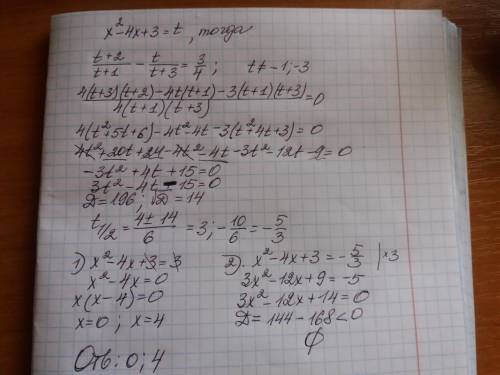 x²-4x+3=t, тогда
t+2/t+1 - t/t+3 = 3/4; t≠-1;-3
4(t+3)(t+2)-4t(t+1)-3(t+1)(t+3)/4(t+1)(t+3)=0
4(t²+5t+6)-4t²-4t-3(t²+4t+3)=0
4t²+20t+24-4t²-4t-3t²-12t-9=0
-3t²+4t+15=0
3t²-4t-15=0
D=196; √D=14
t1/2=4±14/6=3; -10/6=-5/3
1) x²-4x+3=3
x²-4x=0
x(x-4)=0
x=0; x=4
2) x²-4x+3=-5/3 |×3
3x²-12x+9=-5
3x²-12x+14=0
D=144-168<0
∅
Отв: 0; 4